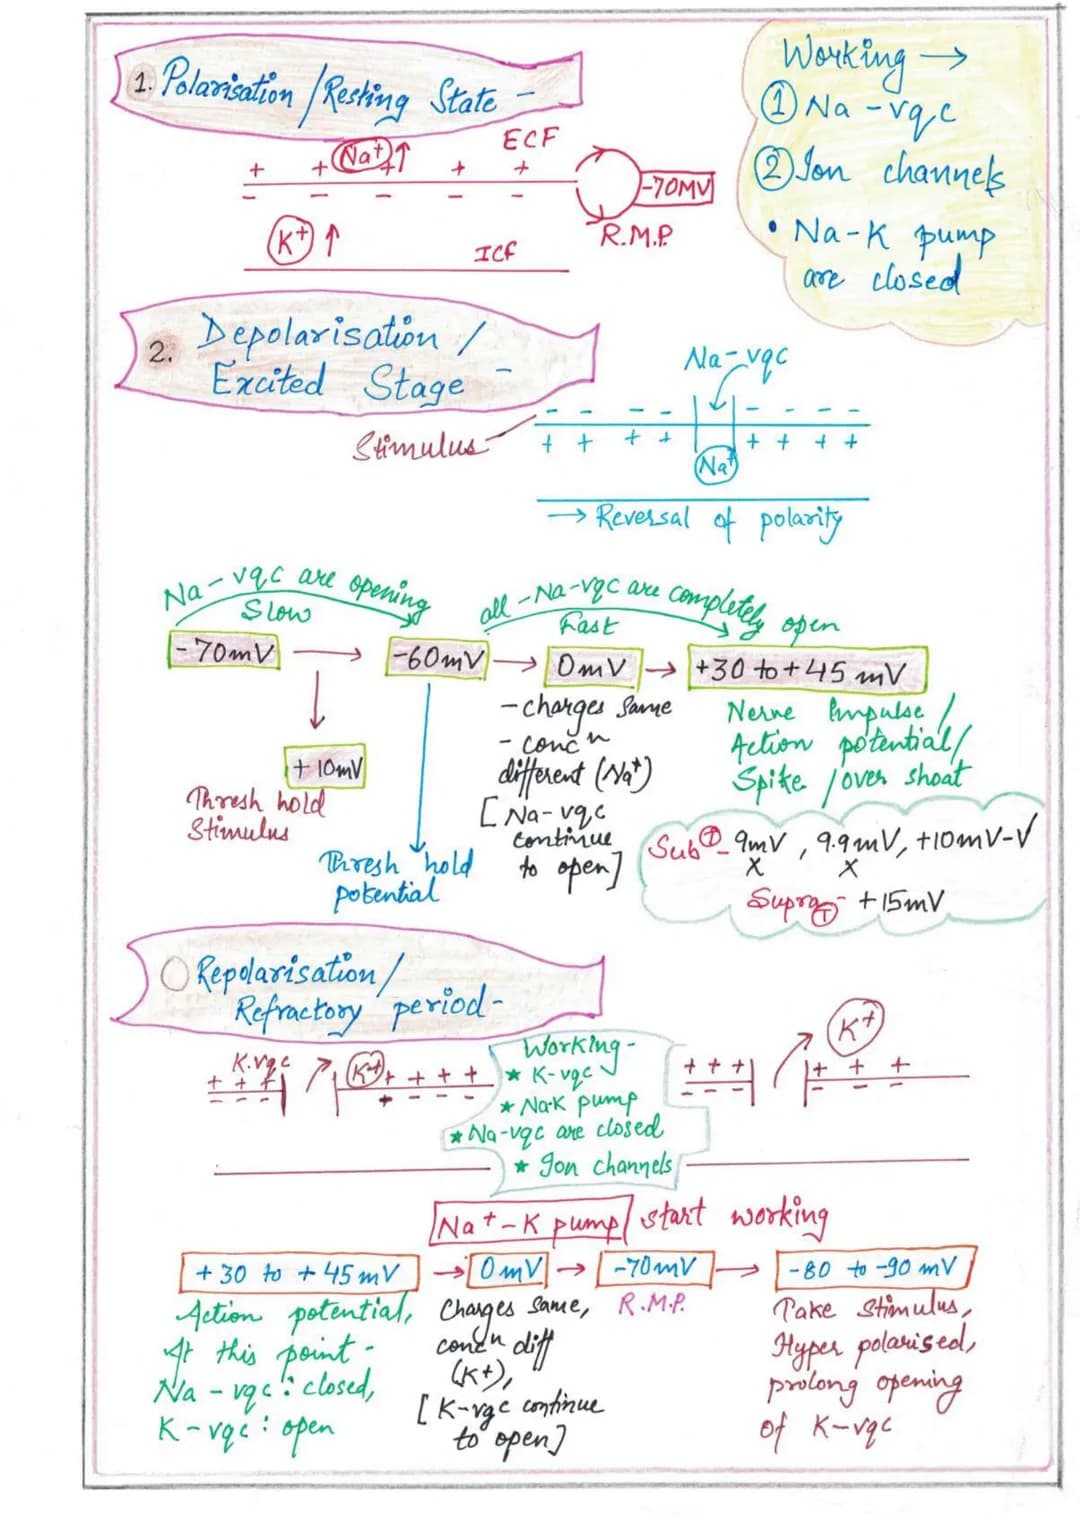 1. Polarisation / Resting State -
ECF
+ + Na+ ↑ + + +
- - - - -
-70MV
R.M.P.
K+ ↑
ICf
Working →
① Na - vgc
② Ion channels
• Na-K pump
are closed
2. Depolarisation /
Excited Stage -
Na-vgc
Stimulus
- - - - - - - -
+ + + + + + + +
Na+
→ Reversal of polarity
Na - vgc are opening
Slow
all - Na-vgc are completely open
Fast
-70mV → -60mV → 0mV → +30 to +45 mV
+ 10mV
Thresh hold
Stimulus
Thresh hold
potential
- charges Same
- concn
different (Na+)
[Na-vgc
continue
to open]
Nerve Impulse /
Action potential/
Spike / over shoat
Sub T - 9mV, 9.9mV, +10mV-√
x x
Supra T - +15mV
Repolarisation /
Refractory period-
K.vgc
+ + +
- - -
K+ + + + +
+ - - -
Working -
* K-vgc
* Na-K pump
* Na-vgc are closed
* Ion channels
+ + +
- - -
K+
+ + +
- - -
Na+ - K pump start working
+ 30 to + 45 mV → 0mV → -70mV → -80 to -90 mV
Action potential,
At this point -
Na - vgc : closed,
K - vgc : open
Charges Same,
concn diff
(K+),
[K-vgc continue
to open]
R.M.P.
Take Stimulus,
Hyper polarised,
prolong opening
of K-vgc